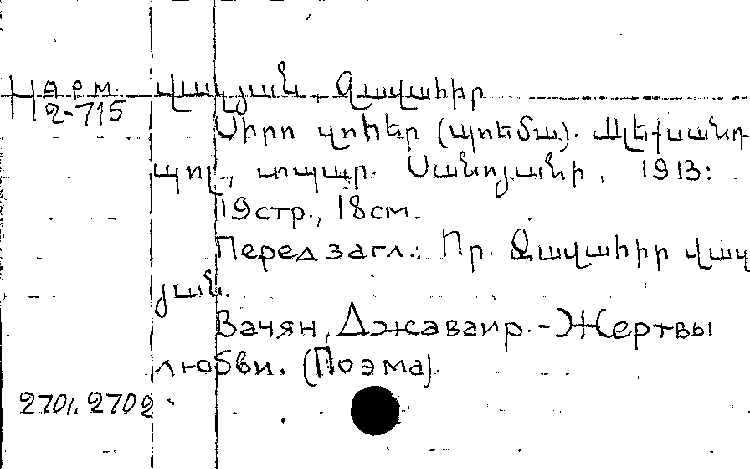 Арм. Վաչյան, Ջավահիր
2-715
Սիրո զոհեր (պոեմա). Ալեքսանդ
պոլ, տպար. Սանոյանի, 1913:
19стр., 18см.
Перед загл.: Որ. Ջավահիր Վաչ
յան.
Вачян, Джаваир. - Жертвы
любви. (Поэма).
2701. 2702